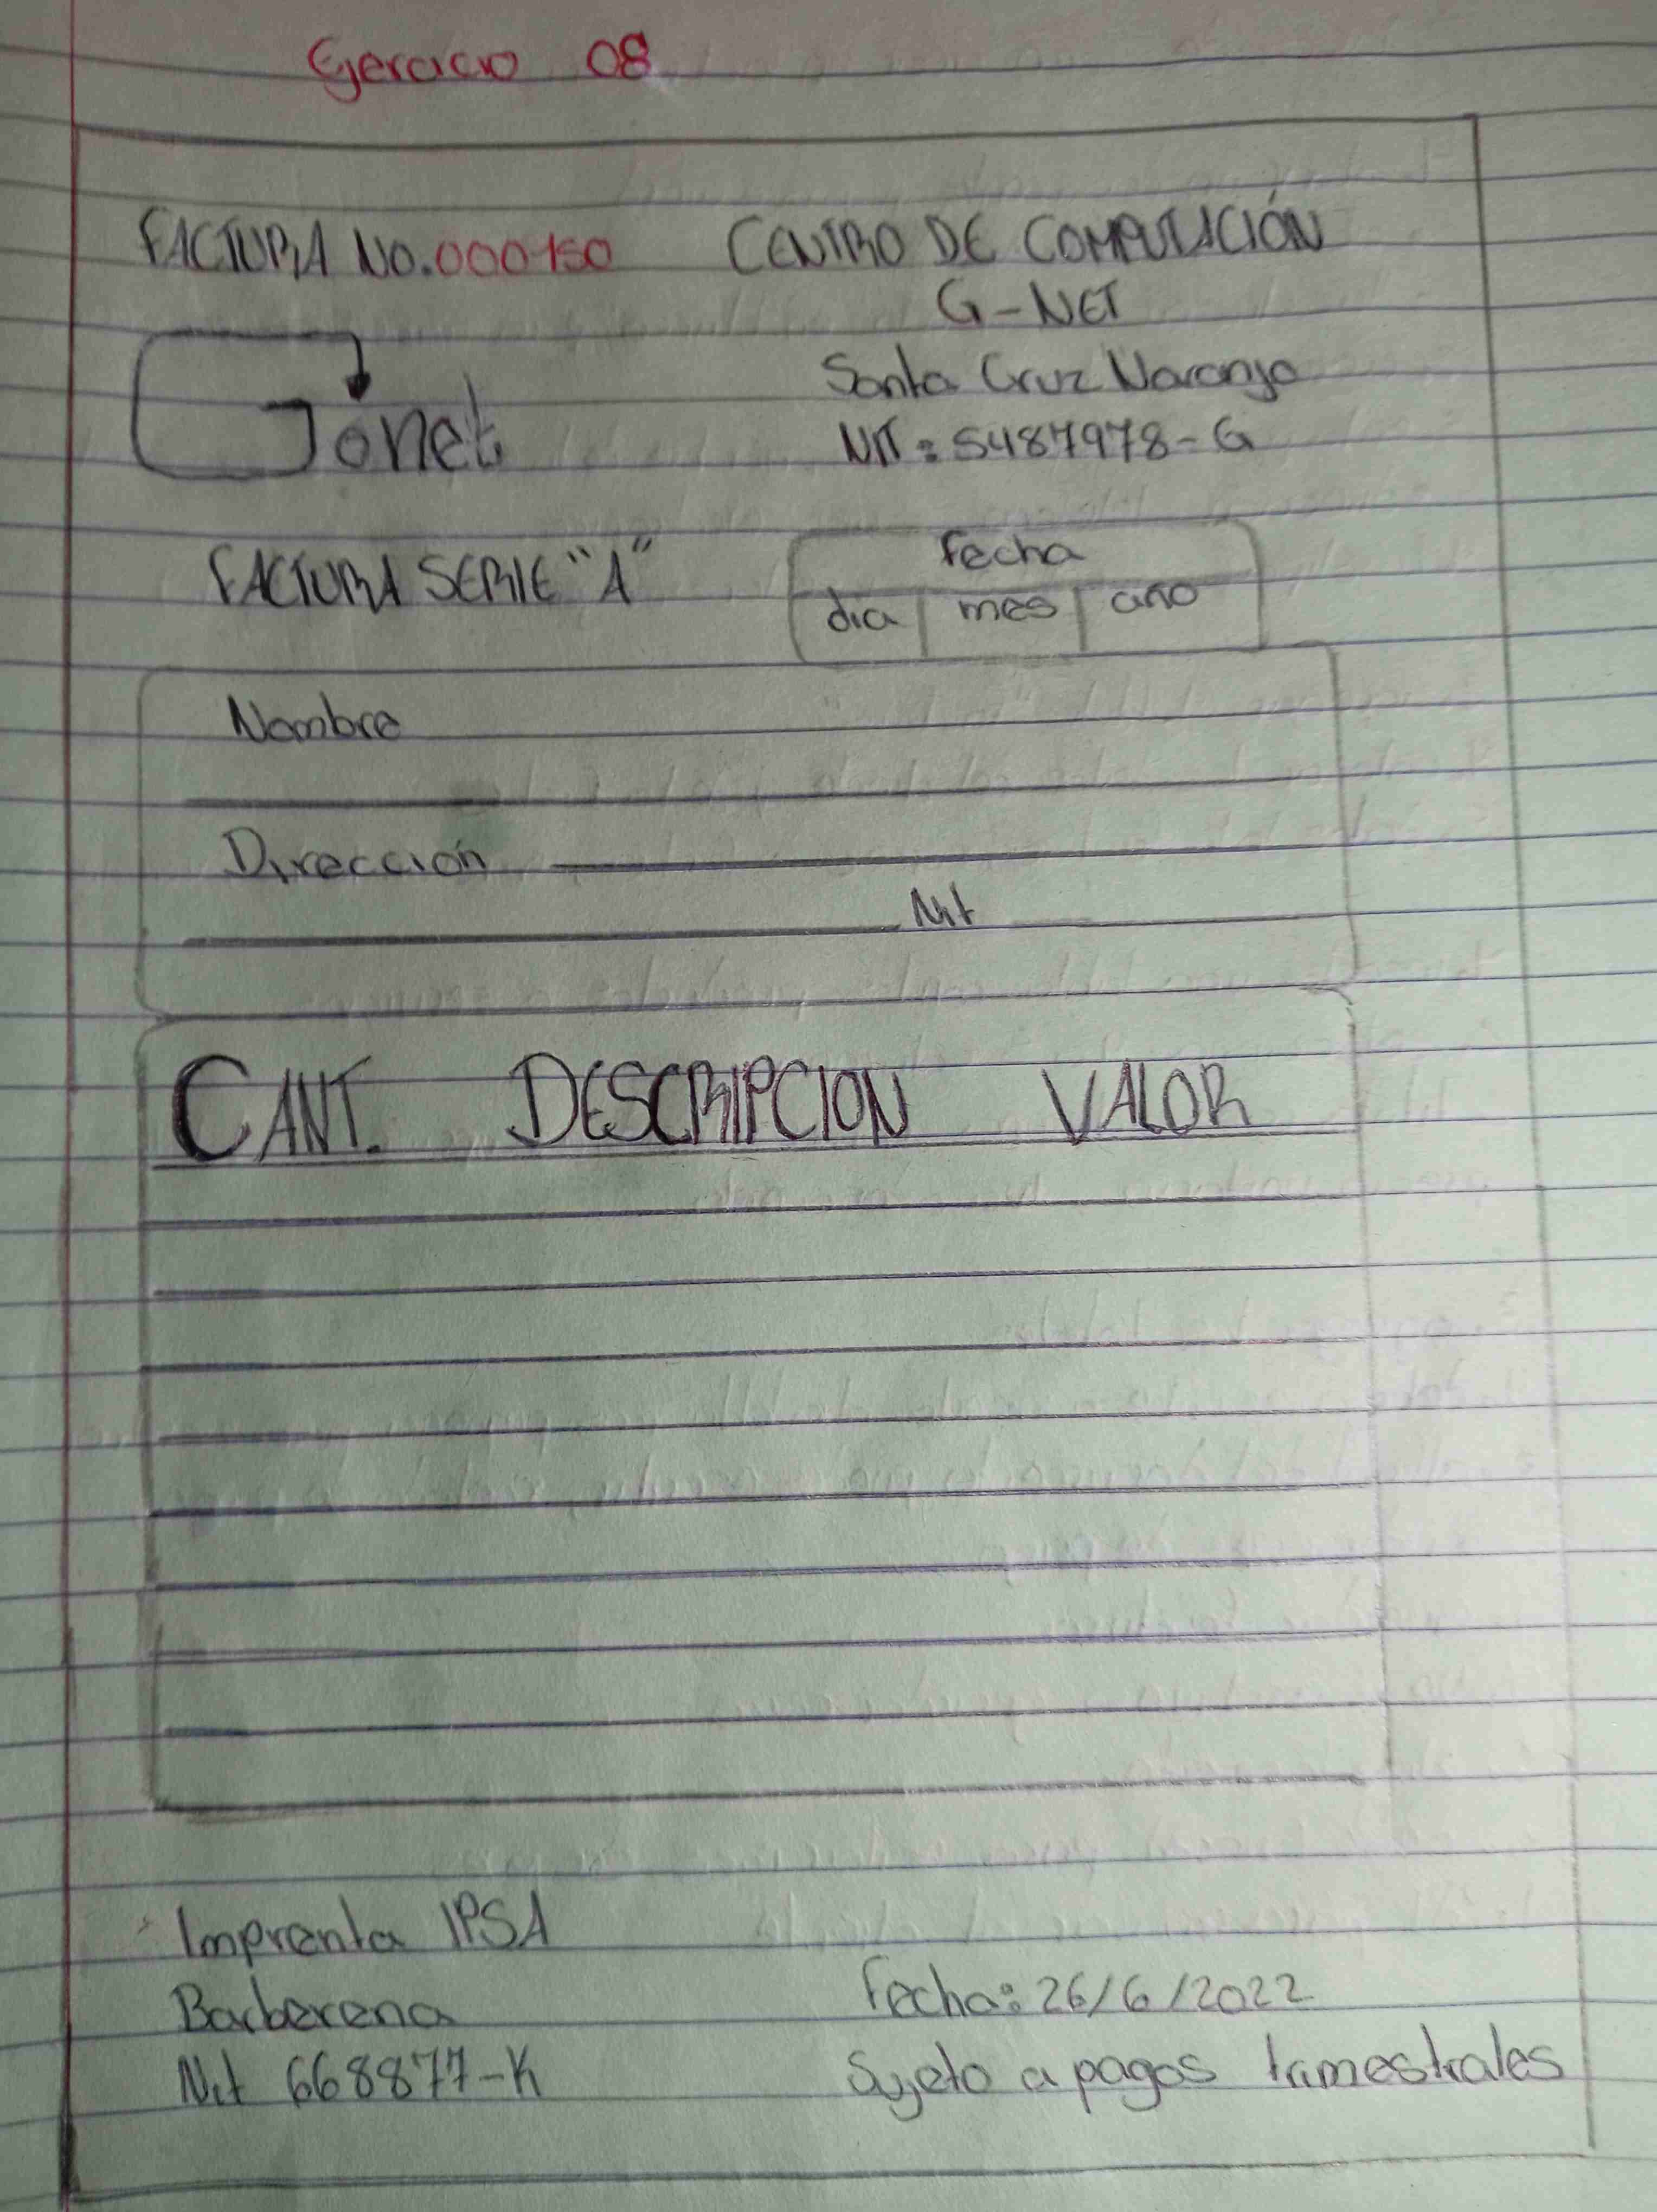 Ejercicio 08
FACTURA NO. 000150 CENTRO DE COMPUTACIÓN
G-NET
Santa Cruz Naranjo
Gónet
NIT: 5487978-G
FACTURA SERIE "A"
Fecha
dia mes año
Nombre
Dirección
Nit
CANT. DESCRIPCION VALOR
Imprenta IPSA
Barberena
Fecha: 26/6/2022
Nit 668877-K
Sujeto a pagos trimestrales